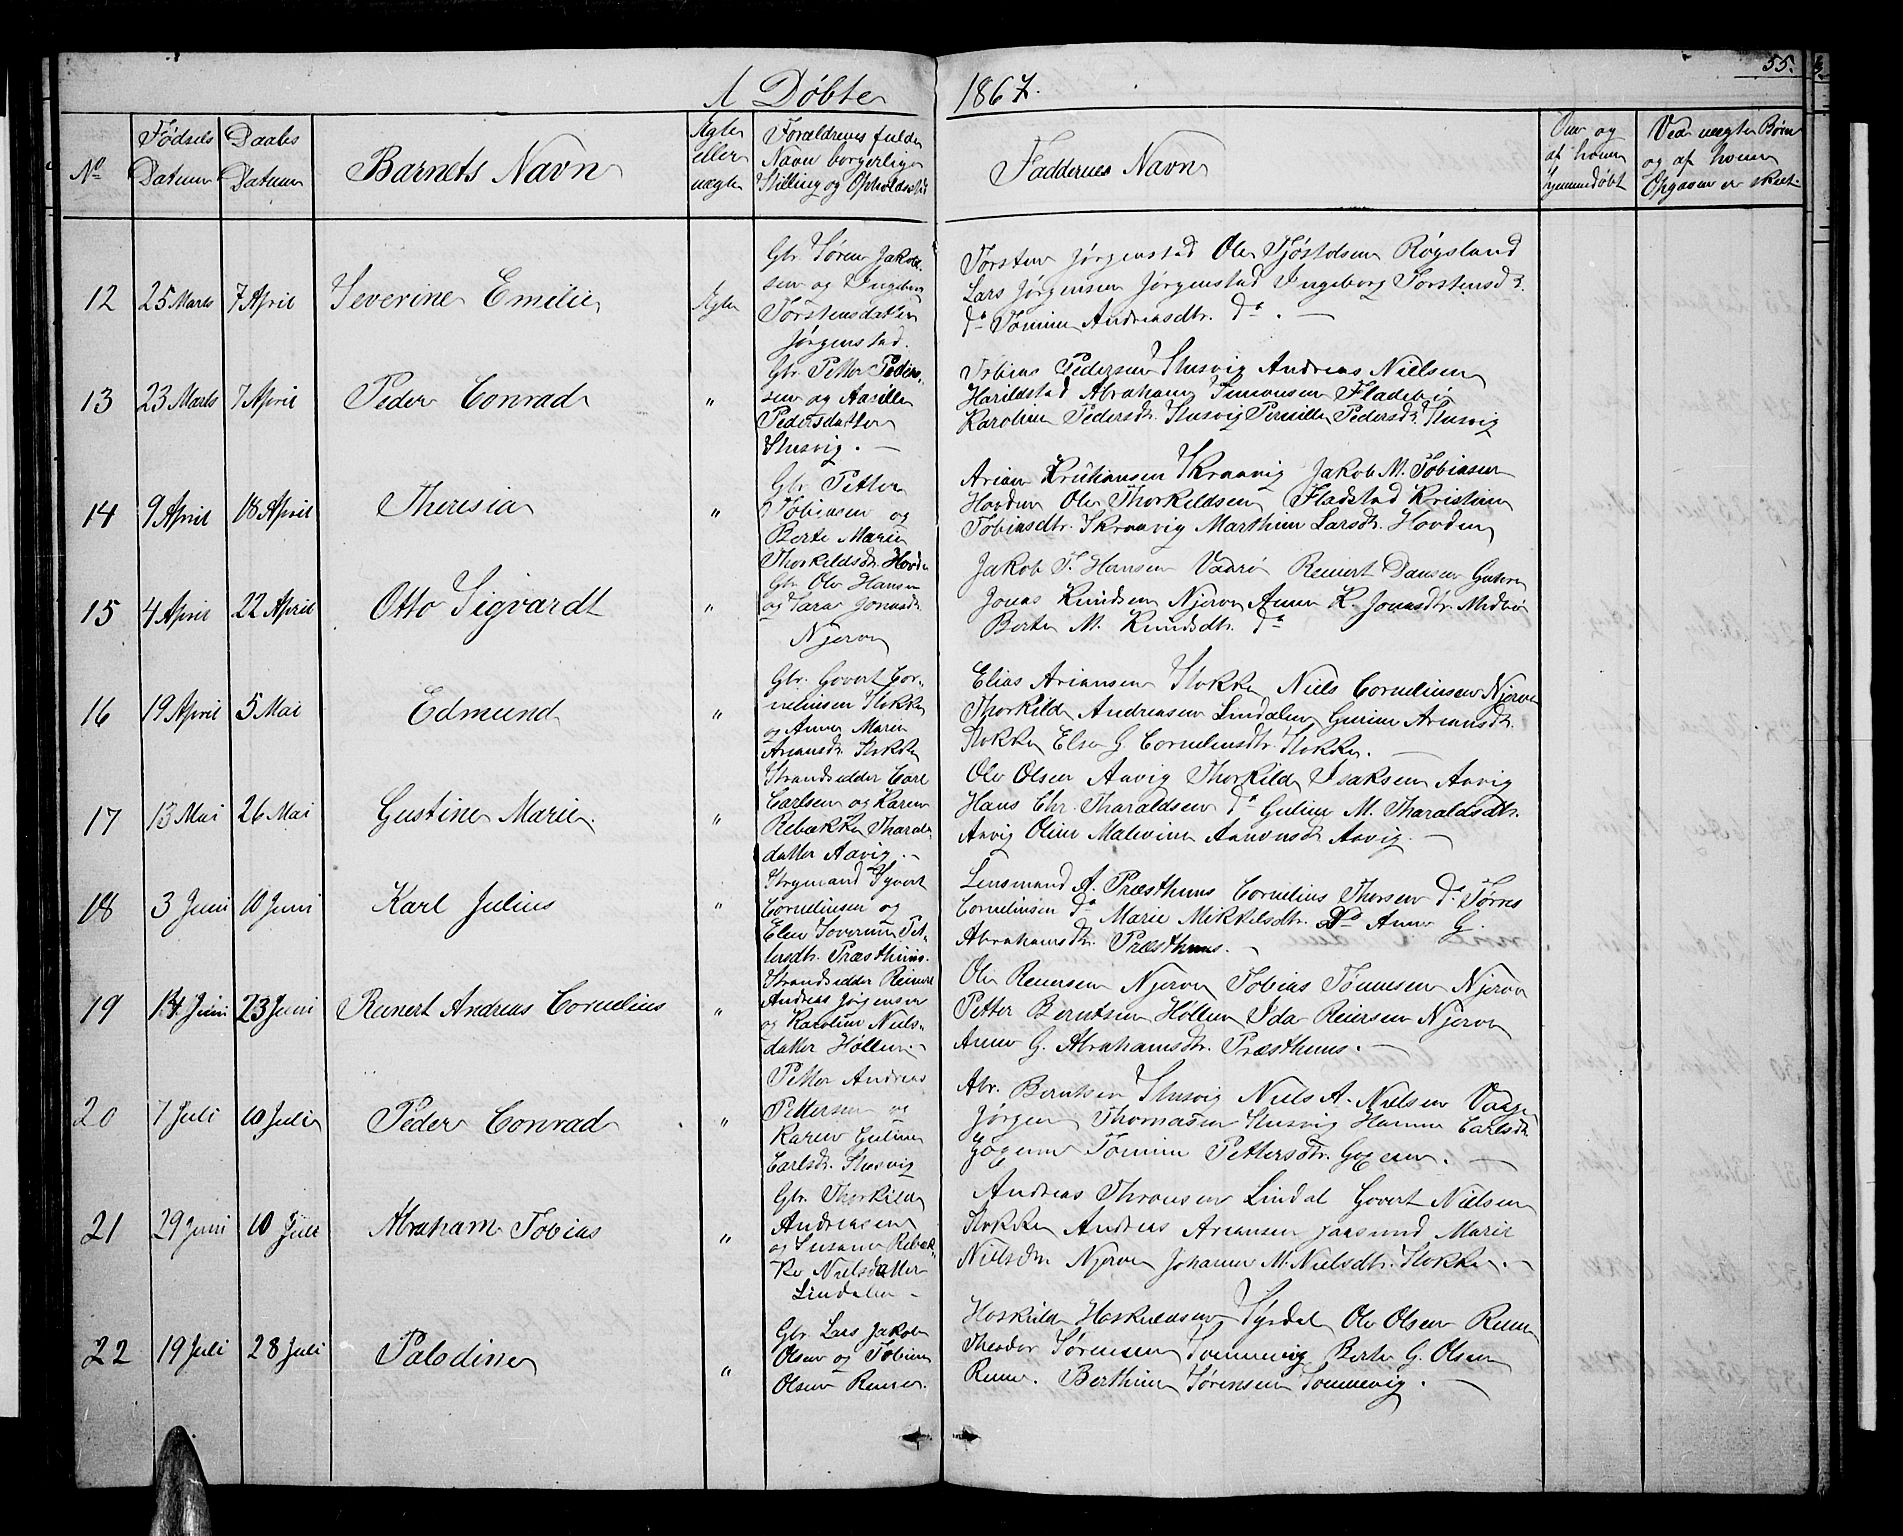 55.
A Døbte 1867.
No
Fødsels Datum
Daabs Datum
Barnets Navn
Ægte eller uægte
Forældrenes fulde Navn borgerlige Stilling og Opholdssted
Faddernes Navn
Om og af hvem hjemmedøbt
Ved uægte Børn og af hvem Opgaven er skeet.
12 25 Marts 7 April Severine Emilie Ægte
Gbr. Søren Jakob-
sen og Ingeborg
Torstensdatter
Jørgenstad.
Torsten Jørgenstad Ole Tjøstolsen Røgsland
Lars Jørgensen Jørgenstad Ingeborg Torstensd.
do Tomine Andreasdtr. do. —
13 23 Marts 7 April Peder Conrad "
Gbr. Petter Tobias-
sen og Aasille
Pedersdatter
Stusvig. —
Tobias Pedersen Stusvig Andreas Nielsen
Harildstad Abraham Simonsen Fladebø
Karoline Pedersdt. Stusvig Pernille Pedersdt. Stusvig
14 9 April 18 April Theresia "
Gbr. Petter
Tobiasen og
Berte Marie
Thorkildsdt. Hovden
Arian Kristiansen Skraavig Jakob M. Tobiasen
Hovden Ole Thorkildsen Fladstad Kristine
Tobiasdtr. Skraavig Marthine Larsdt. Hovden
15 4 April 22 April Otto Sigvardt "
Gbr. Ole Hansen
og Sara Jonasdt.
Njerve
Jakob T. Hansen Reinert Dansen
Jonas Knudsen Njerve Anne K. Jonasdtr. Midbø
Berte M. Knudsdtr. do
16 19 April 5 Mai Edmund "
Gbr. Govert Cor-
neliusen Stokke
og Anne Marie
Ariansdt. Stokke
Elias Ariansen Stokke Niels Corneliusen Njerve
Thorkild Andreasen Lindalen Gurine Ariansdt.
Stokke Else G Corneliusdtr. Stokke. —
17 13 Mai 26 Mai Gustine Marie. "
Strandsidder Carl
Carlsen og Karen
Rebakke Tharalds-
datter Aavig. —
Ole Olsen Aavig Thorkild Isaksen Aavig
Hans Chr. Tharaldsen do Guline M. Tharaldsdtr.
Aavig Oline Malevine Aanensdt. Aavig. —
18 3 Juni 10 Juni Karl Julius "
Styrmand Syvert
Corneliusen og
Elen Severine Pet-
tersdtr. Præsthuus.
Lensmand A. Præsthuus Cornelius Thorsen do Tørres
Corneliusen do Marie Mikkelsdtr. do Anne G.
Abrahamsdtr. Præsthuus. —
19 14 Juni 23 Juni Reinert Andreas Cornelius "
Strandsidder Reinert
Andreas Jørgensen
og Karoline Niels-
datter Høllen. —
Ole Reiersen Njerve Tobias Tønnesen Njerve
Petter Berntsen Høllen Ida Reiersen Njerve
Anne G. Abrahamsdtr. Præsthuus. —
20 7 Juli 10 Juli Peder Conrad "
Petter Andreas
Pettersen og
Karen Guline
Carlsdt. Stusvig
Abr. Berntsen Stusvig Niels A. Nielsen Vaage
Jørgen Thomasen Stusvig Hanne Carlsdt.
Tomine Pettersdtr. —
21 29 Juni 10 Juli Abraham Tobias "
Gbr. Thorkild
Andreasen
og Susanne Rebek-
ke Nielsdatter
Lindalen —
Andreas Thronsen Lindal Govert Nielsen
Stokke Andreas Ariansen Jaasund Marie
Nielsdtr. Njerve Johanne M. Nielsdtr. Stokke. —
22 19 Juli 28 Juli Palodine "
Gbr. Lars Jakob
Olsen og Tobine
Olsen Reme.
Hoskild Hoskildsen Syrdal Ole Olsen Reme
Theodor Sørensen Tommevig Berte G. Olsen
Reme. Berthine Sørensen Tommevig. —